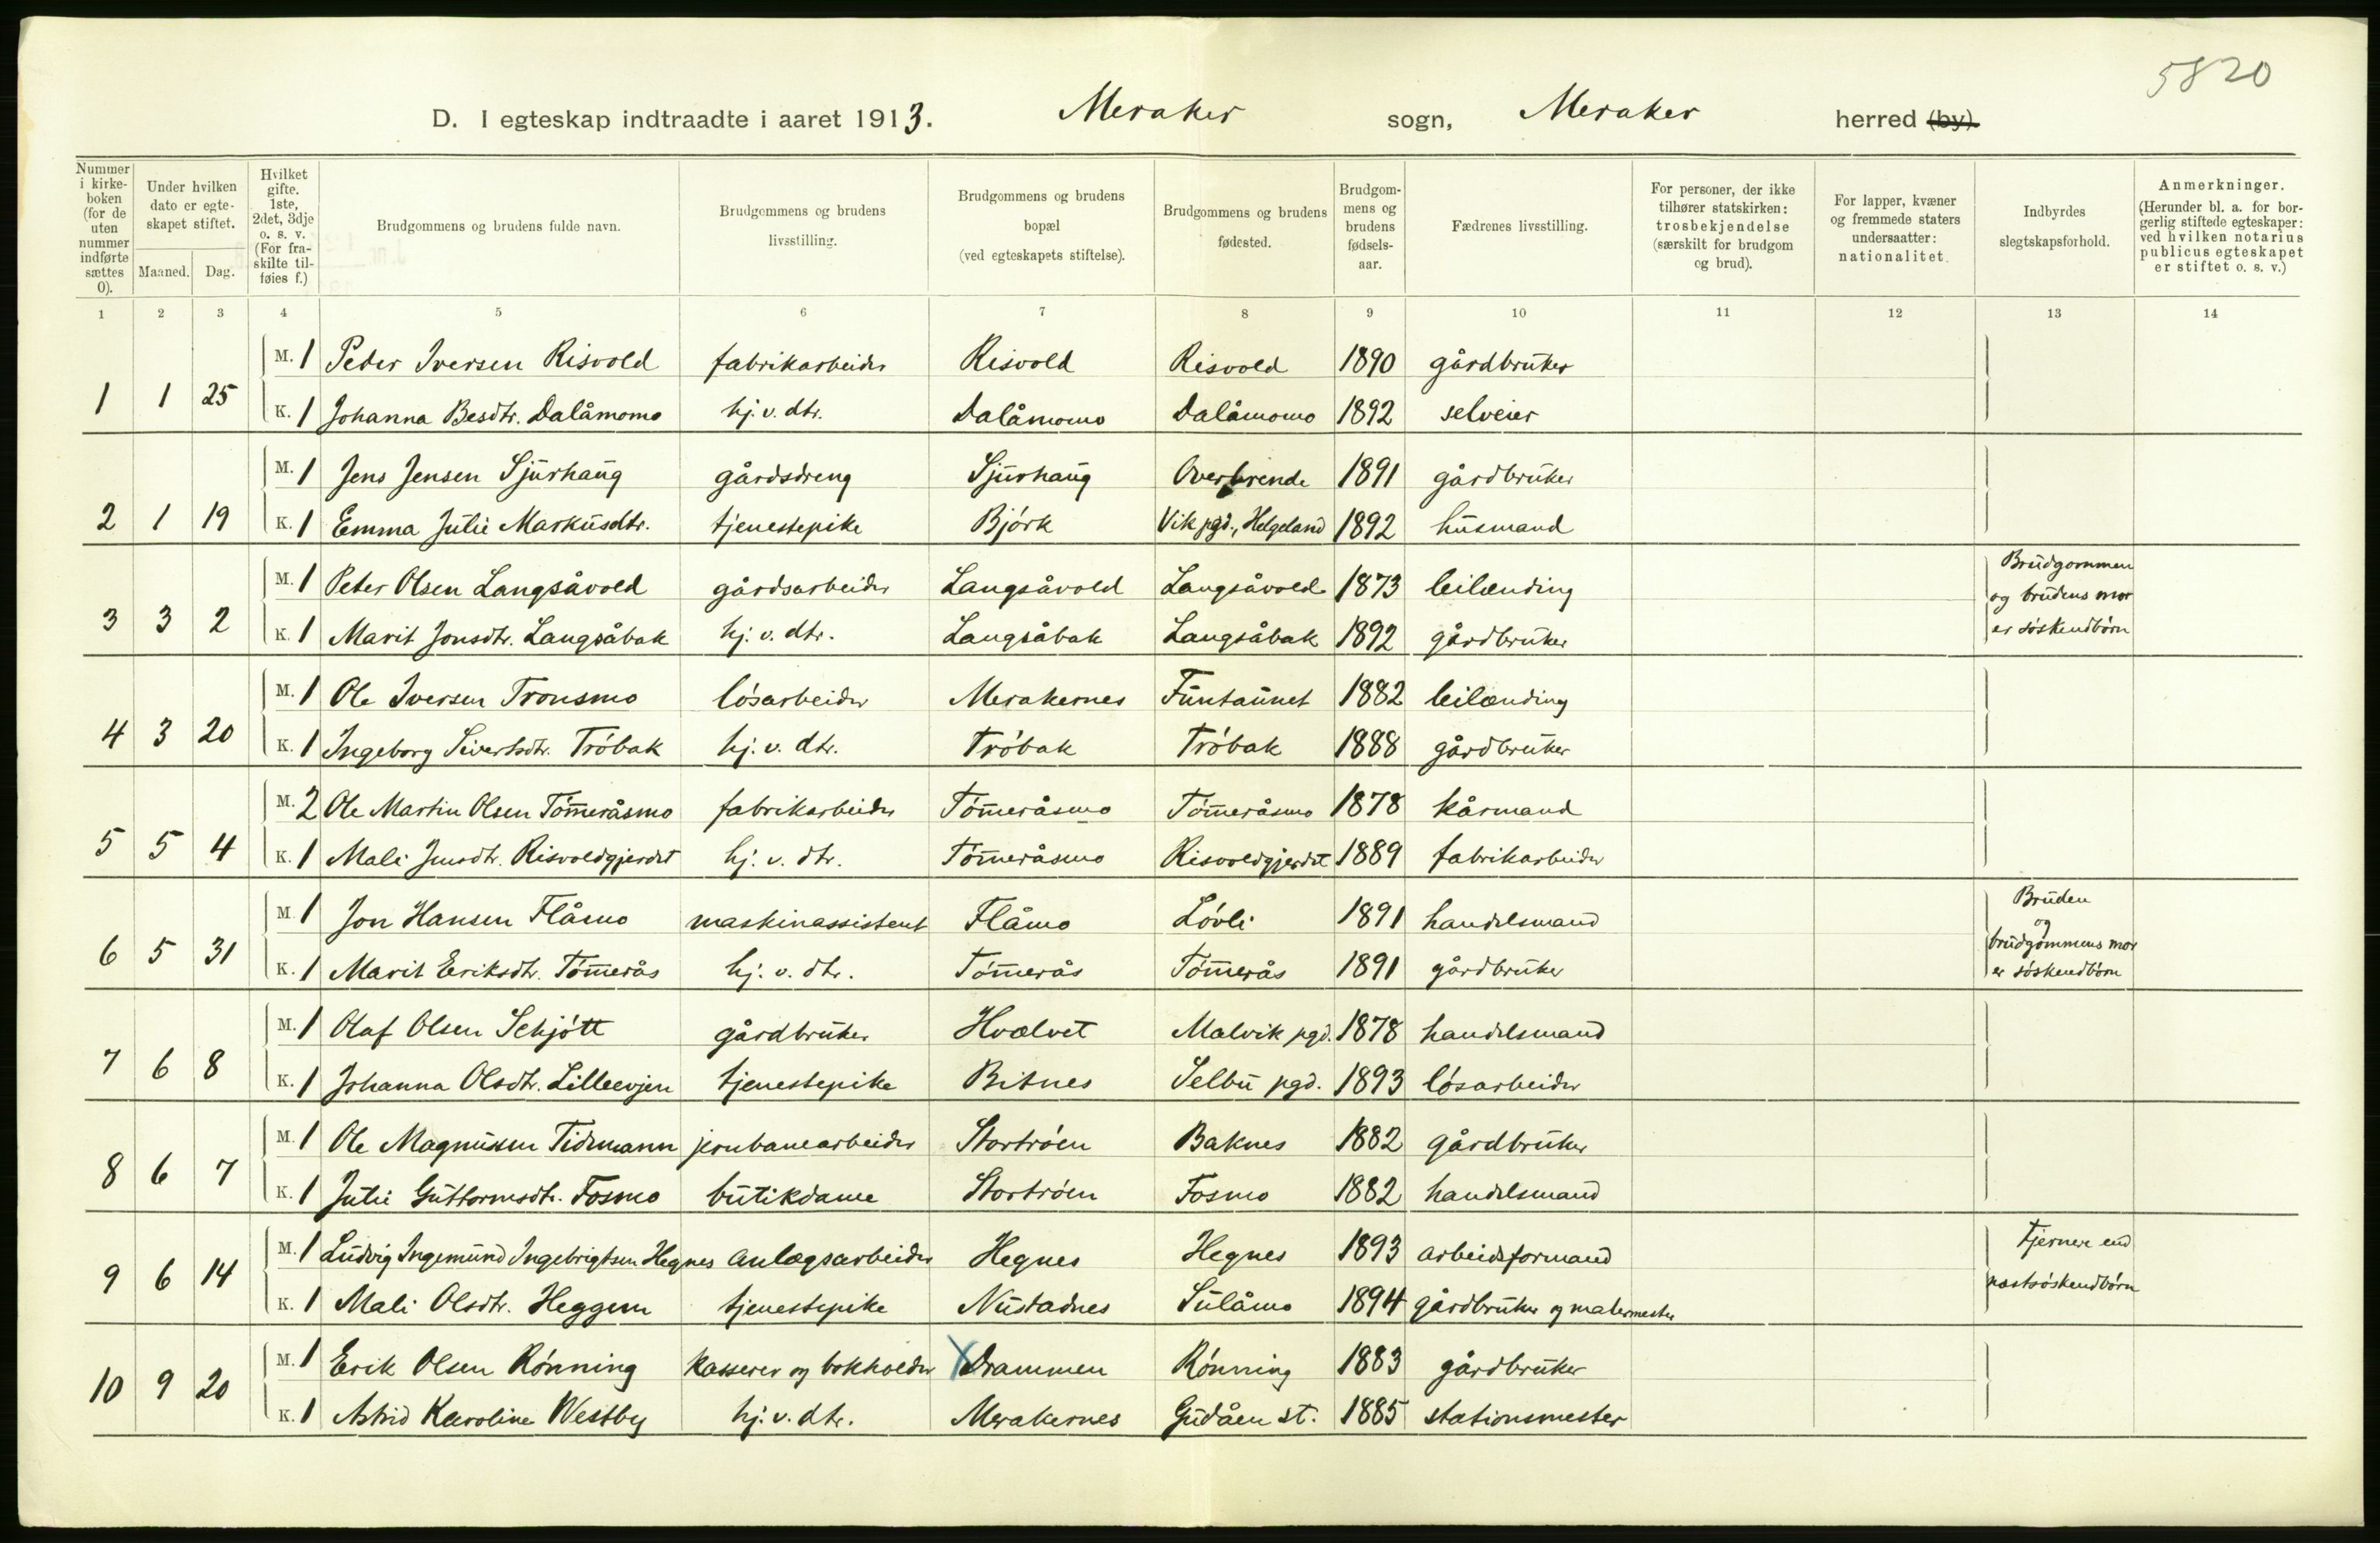 5820
D. I egteskap indtraadte i aaret 1913. Meraker sogn, Meraker herred (by).
Nummer i kirkeboken (for de uten nummer indførte sættes 0).
Under hvilken dato er egteskapet stiftet.
Maaned. Dag.
Hvilket gifte. 1ste, 2det, 3dje o. s. v. (For fraskilte tilføies f.)
Brudgommens og brudens fulde navn.
Brudgommens og brudens livsstilling.
Brudgommens og brudens bopæl (ved egteskapets stiftelse).
Brudgommens og brudens fødested.
Brudgommens og brudens fødselsaar.
Fædrenes livsstilling.
For personer, der ikke tilhører statskirken: trosbekjendelse (særskilt for brudgom og brud).
For lapper, kvæner og fremmede staters undersaatter: nationalitet.
Indbyrdes slegtskapsforhold.
Anmerkninger. (Herunder bl. a. for borgerlig stiftede egteskaper: ved hvilken notarius publicus egteskapet er stiftet o. s. v.)
1 2 3 4 5 6 7 8 9 10 11 12 13 14
M. 1 Peder Iversen Risvold fabrikarbeider Risvold Risvold 1890 gårdbruker
1 1 25
K. 1 Johanna Besdtr. Dalåmomo hj. v. dtr. Dalåmomo Dalåmomo 1892 selveier
M. 1 Jens Jensen Sjurhaug gårdsdreng Sjurhaug Overbrende 1891 gårdbruker
2 1 19
K. 1 Emma Julie Markusdtr. tjenestepike Björk Vik pgd., Helgeland 1892 husmand
M. 1 Peter Olsen Langsåvold gårdsarbeider Langsåvold Langsåvold 1873 leilænding
3 3 2
K. 1 Marit Jonsdtr. Langsåbak hj. v. dtr. Langsåbak Langsåbak 1892 gårdbruker
Brudgommen
og brudens mor
er söskendbörn
M. 1 Ole Iversen Tronsmo lösarbeider Merakernes Funtaunet 1882 leilænding
4 3 20
K. 1 Ingeborg Sivertsdtr. Tröbak hj. v. dtr. Tröbak Tröbak 1888 gårdbruker
M. 2 Ole Martin Olsen Töm̅eråsmo fabrikarbeider Töm̅eråsmo Töm̅eråsmo 1878 kårmand
5 5 4
K. 1 Mali Jensdtr. Risvoldgjerdet hj. v. dtr. Töm̅eråsmo Risvoldgjerdet 1889 fabrikarbeider
M. 1 Jon Hansen Flåmo maskinassistent Flåmo Lövli 1891 handelsmand
6 5 31
K. 1 Marit Eriksdtr. Töm̅erås hj. v. dtr. Töm̅erås Töm̅erås 1891 gårdbruker
Bruden
og
brudgommens mor
er söskendbörn
M. 1 Olaf Olsen Schjött gårdbruker Hvælvet Malvik pgd. 1878 handelsmand
7 6 8
K. 1 Johanna Olsdtr. Lilleevjen tjenestepike Bitnes Selbu pgd. 1893 lösarbeider
M. 1 Ole Magnusen Tidemann jernbanearbeider Storröen Baknes 1882 gårdbruker
8 6 7
K. 1 Julie Guttormsdtr. Fosmo butikdame Storröen Fosmo 1882 handelsmand
M. 1 Ludvig Ingemund Ingebrigtsen Hegnes anlægsarbeider Hegnes Hegnes 1893 arbeidsformand
9 6 14
K. 1 Mali Olsdtr. Heggem tjenestepike Nustadnes Sulåmo 1894 gårdbruker og malermester
Fjernere end
næstsöskendbörn
M. 1 Erik Olsen Rönning kasserer og bokholder X Drammen Rönning 1883 gårdbruker
10 9 20
K. 1 Astrid Karoline Westby hj. v. dtr. Merakernes Gudåen st. 1885 stationsmester